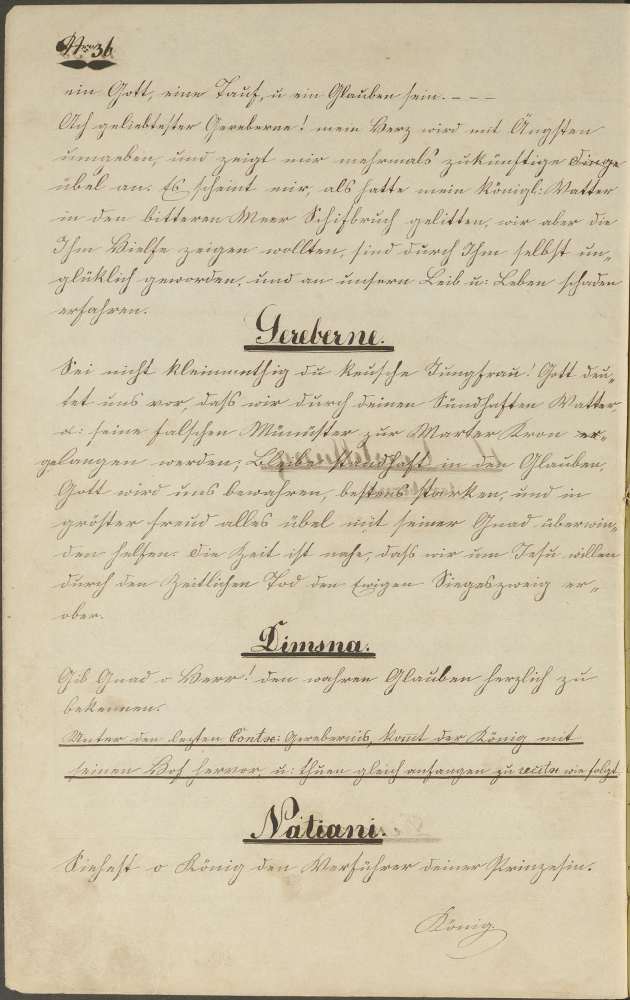 Nro 36
ein Gott, eine Tauf, u ein Glauben sein. - - -
Ach geliebtester Gereberne! mein Herz wird mit Ängsten
umgeben, und zeigt mir mehrmals zukünftige Dinge
übel an. Es scheint mir, als hatte mein Königl: Vatter
in den bitteren Meer Schifbruch gelitten, wir aber die
Ihm Hielfe zeigen wollten, sind durch Ihm selbst un„
glüklich geworden, und an unsern Leib u: Leben schaden
erfahren.
Gereberne.
Sei nicht kleinmuthig du keusche Jungfrau! Gott deu„
tet uns vor, daſs wir durch deinen Sündhaften Vatter,
u: seine falschen Münüster zur Marter Kron er„
gelangen werden; Bleibe standhaft in den Glauben,
Gott wird uns bewahren, bestens starken, und in
gröster freud alles übel mit seiner Gnad überwin„
den helfen. Die Zeit ist nahe, daſs wir um Jesu willen
durch den Zeitlichen Tod den Ewigen Siegeszweig er„
ober.
Dimsna.
Gib Gnad o Herr! den wahren Glauben herzlich zu
bekennen.
Unter den lezten Contxt: Gerebernis, komt der König mit
seinen Hof hervor, u: thuen gleich anfangen zu recitx wie folgt
Natiani.
Siehest o König den Verführer deiner Prinzesin.
König